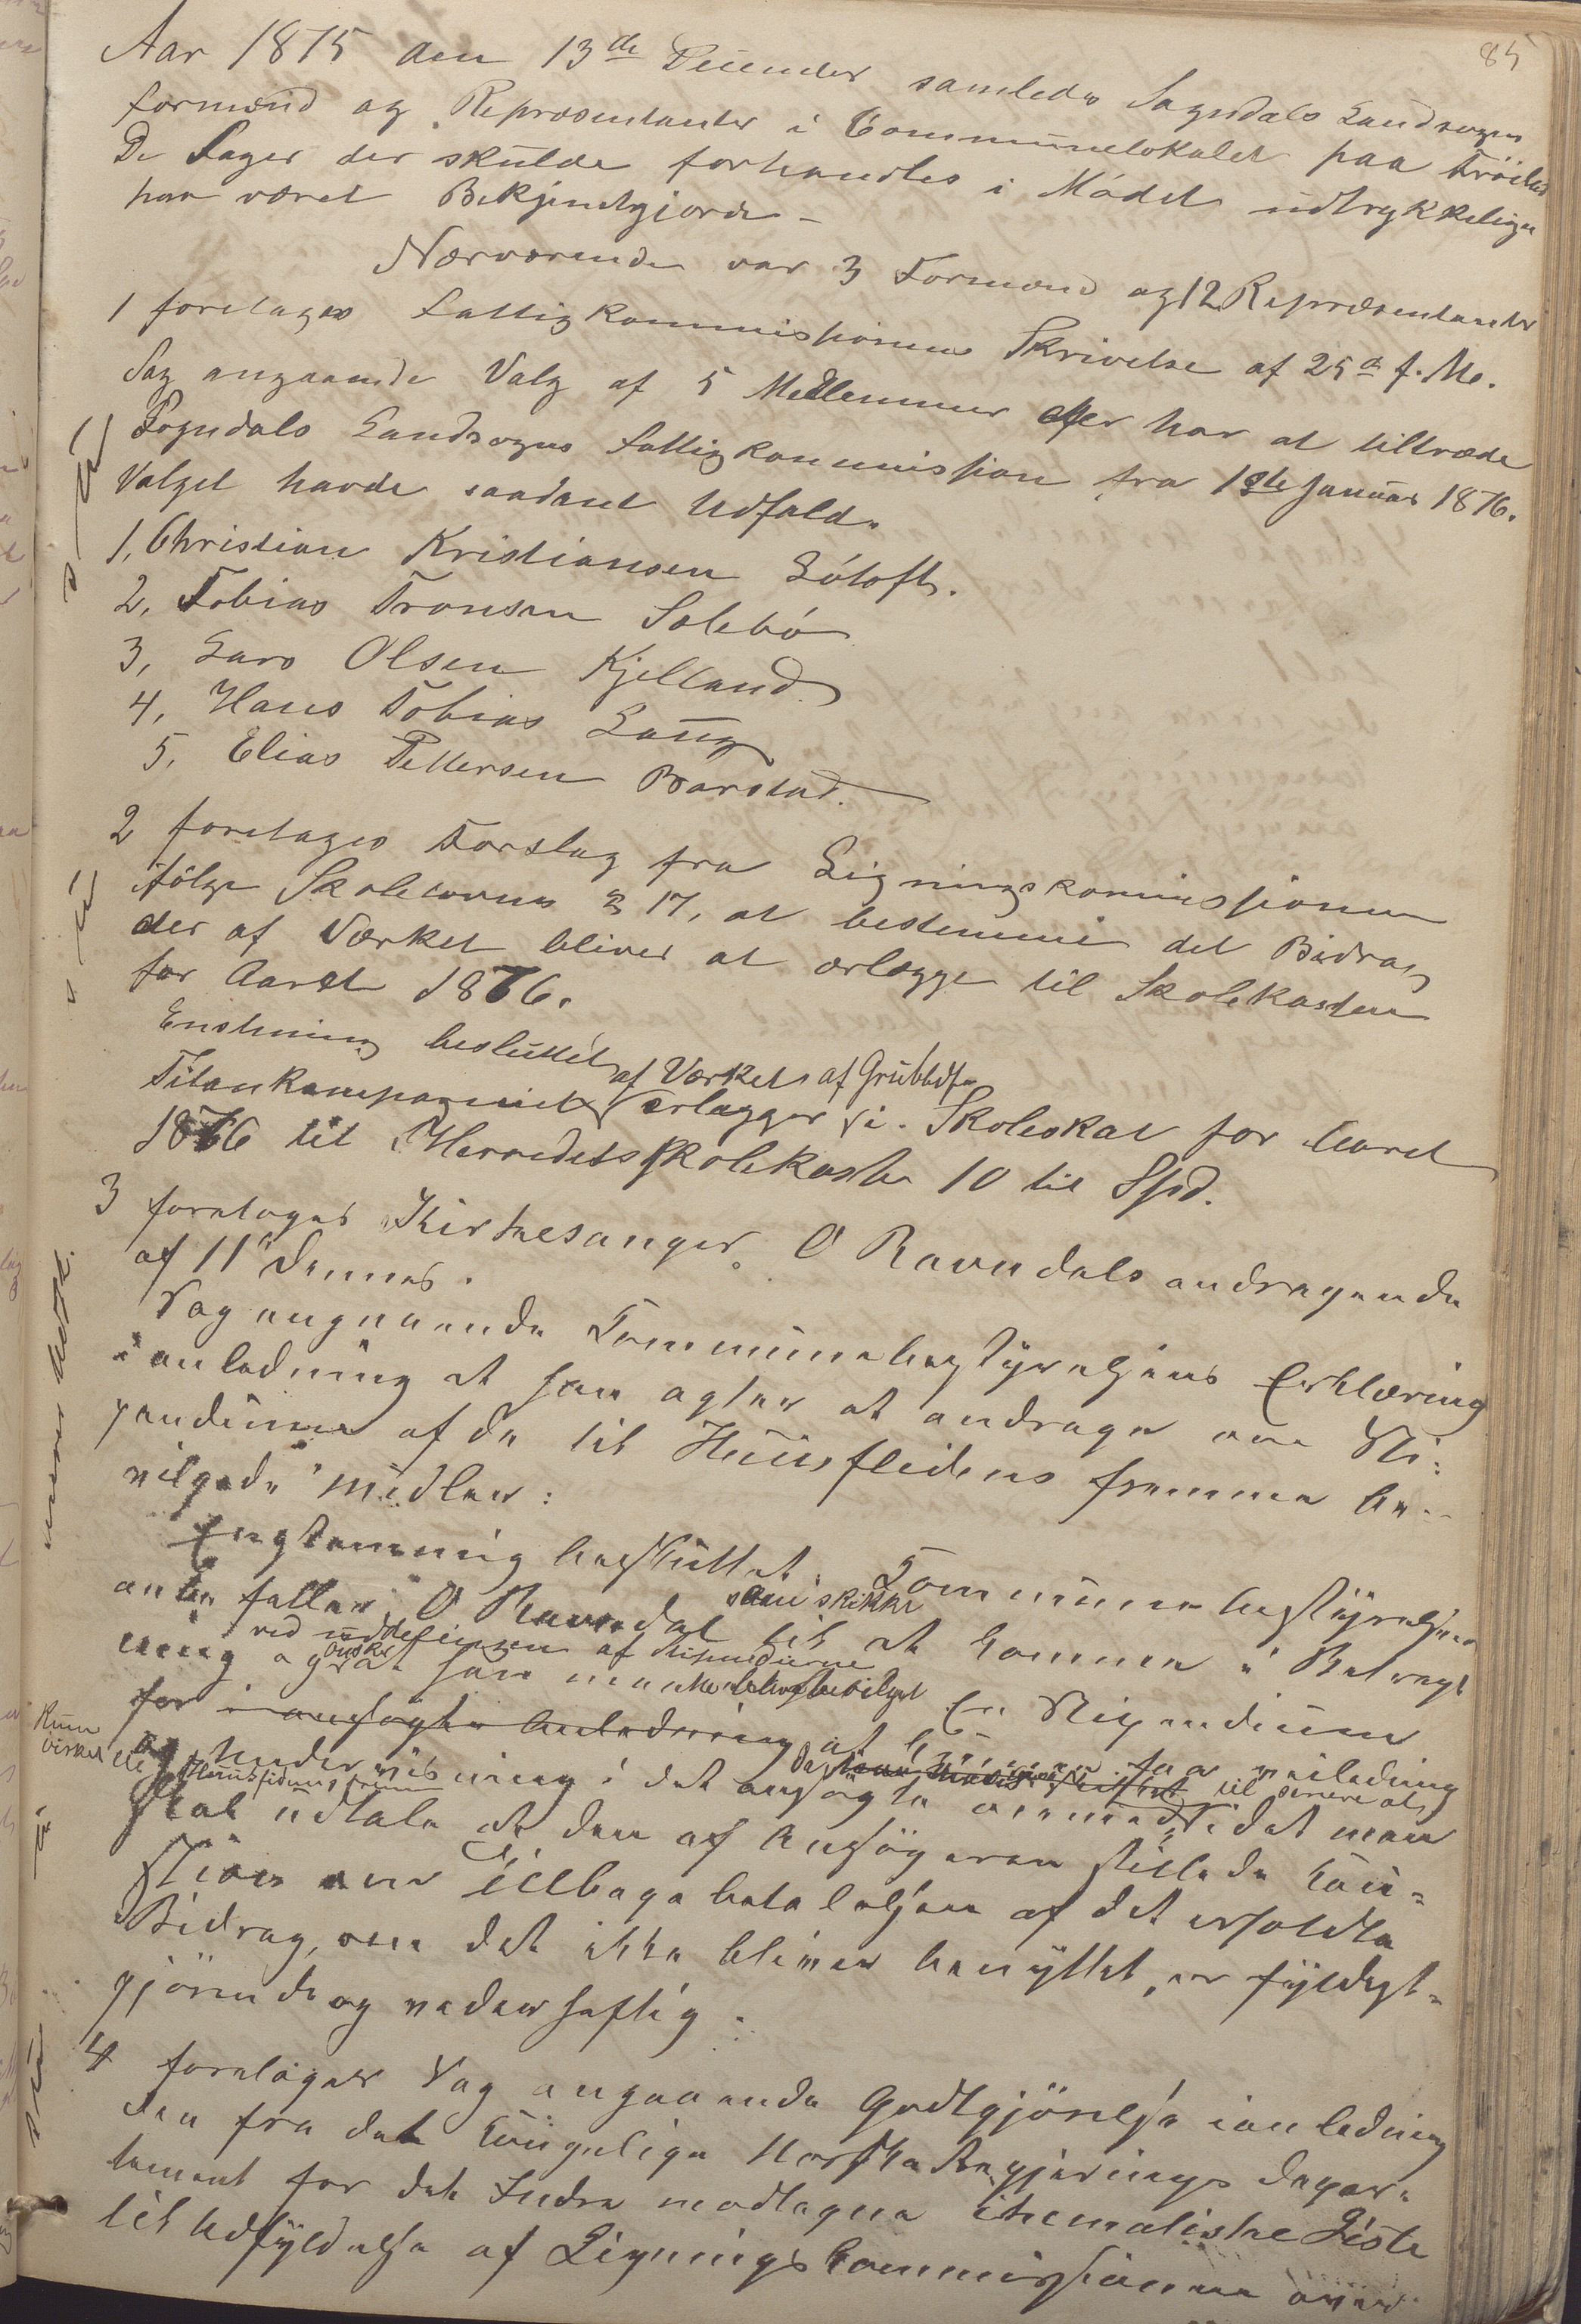 85
Aar 1875 den 13de December samledes Sogndals Landsogns
formænd og Repræsentanter i Communelokalet paa Fröilad
De Sager der skulde forhandles i Mödet udtrykkeligen
har været Bekjendtgjorde –
Nærværende var 3 Formænd og 12 Repræsentanter
1 foretages Fattigkommissionens Skrivelse af 25de f. M.
Sag angaaende Valg af 5 Medlemmer der har at tiltræde
Sogndals Landsogns Fattigkommission fra 1ste Januar 1876.
Valget havde saadant Udfald.
1, Christian Kristiansen Lótoft.
2, Tobias Tronsen Solebö
3, Lars Olsen Kjelland
4, Hans Tobias Laug
5, Elias Pettersen Barstad.
2 foretages Forslag fra Ligningskommissionen
ifölge Skolelovens § 17, at bestemme det Bidrag
der af Værket bliver at erlægge til Skolekassen
for Aaret 1876.
Enstemmig besluttet af Værket af
Titankompagniet erlægger i Skoleskat for Aaret
1876 til Herredets Skolekasse 10 til Spd.
3 foretages Kirkesanger O Ravndals andragende
af 11te dennes.
Sag angaaende Kommunebestyrelsens Erklæring
i anledning at han agter at andrage om Sti-
pendium af de til Huusflidens fremme be-
vilgede Midler:
Enstemmig besluttet. Kommunebestyrelsen
anbefaller O Ravndal som skikket til at komme i Betragt
ning ved uddelingen af Stipendierne
og önsker at han maatte blive bevilget Et Stipendium
for i ansøgte Anledning at
og Underviisning i det ansøgte
skal udtale at den af Ansögeren stillede Kau-
tion om Tilbagebetalelsen af det erholdte
Bidrag, om det ikke bliver benyttet, er fyldest-
gjörende og vederhæftig.
4 foretages Sag angaaende Godtgjörelse i anledning
den fra det Kongelige Norske Regjerings Depar-
tement for det Indre modtagne thematiske Liste
til Udfyldelse af Ligningskommissionen over